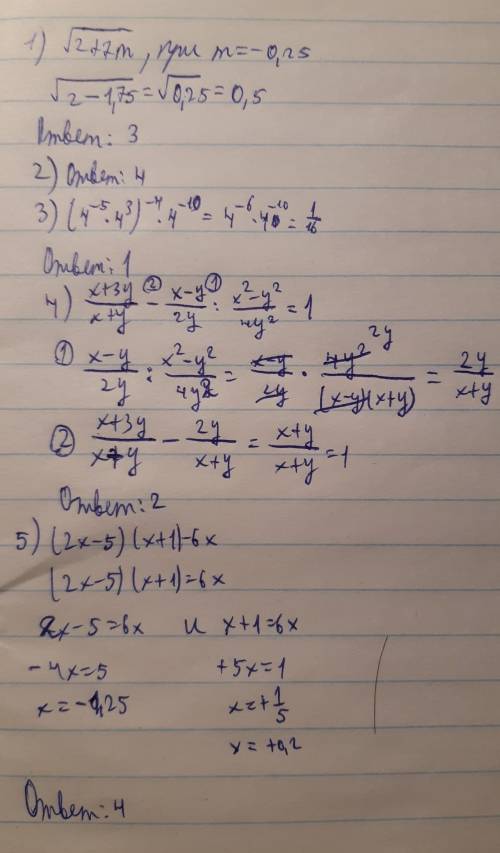 1) √2+7m, при m=-0,25
√2-1,75 = √0,25 = 0,5
Ответ: 3
2) Ответ: 4
3) (4⁻⁵·4³)⁻⁴·4⁻¹⁰ = 4⁻⁶·4⁻¹⁰ = 1/16
Ответ: 1
4) x+3y/x+y ② - x-y/2y ① : x²-y²/4y² = 1
① x-y/2y : x²-y²/4y² = x-y/2y · 4y² 2y/(x-y)(x+y) = 2y/x+y
② x+3y/x+y - 2y/x+y = x+y/x+y = 1
Ответ: 2
5) (2x-5)(x+1)-6x
(2x-5)(x+1)=6x
2x-5=6x и x+1=6x
-4x=5 +5x=1
x=-1,25 x=+1/5
x=+0,2
Ответ: 4